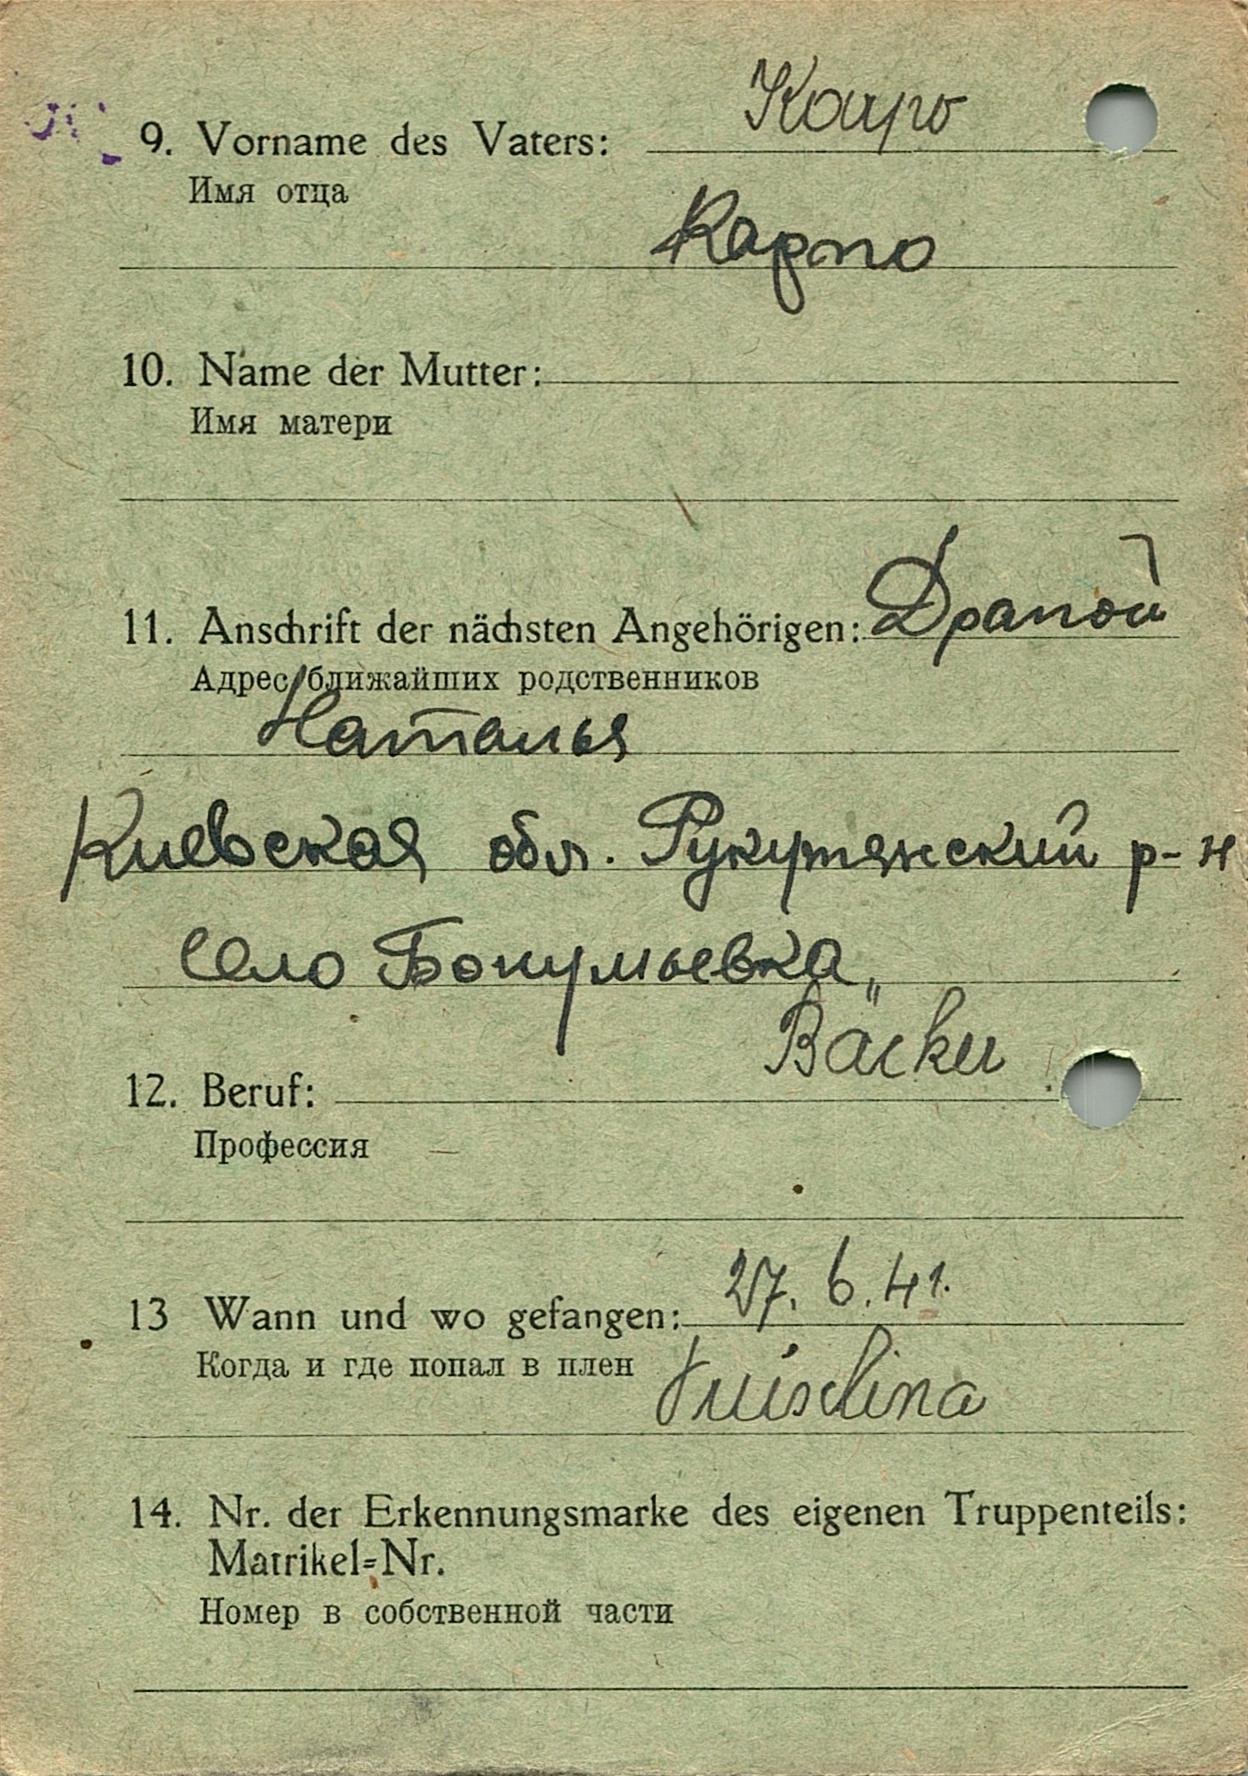 9. Vorname des Vaters: Kaupo
Имя отца
Карпо
10. Name der Mutter:
Имя матери
11. Anschrift der nächsten Angehörigen: Драпой
Адрес ближайших родственников
Наталья
Киевская обл. р-н
Село
Bäcker
12. Beruf:
Профессия
27. 6. 41.
13 Wann und wo gefangen:
Когда и где попал в плен
14. Nr. der Erkennungsmarke des eigenen Truppenteils:
Matrikel=Nr.
Номер в собственной части